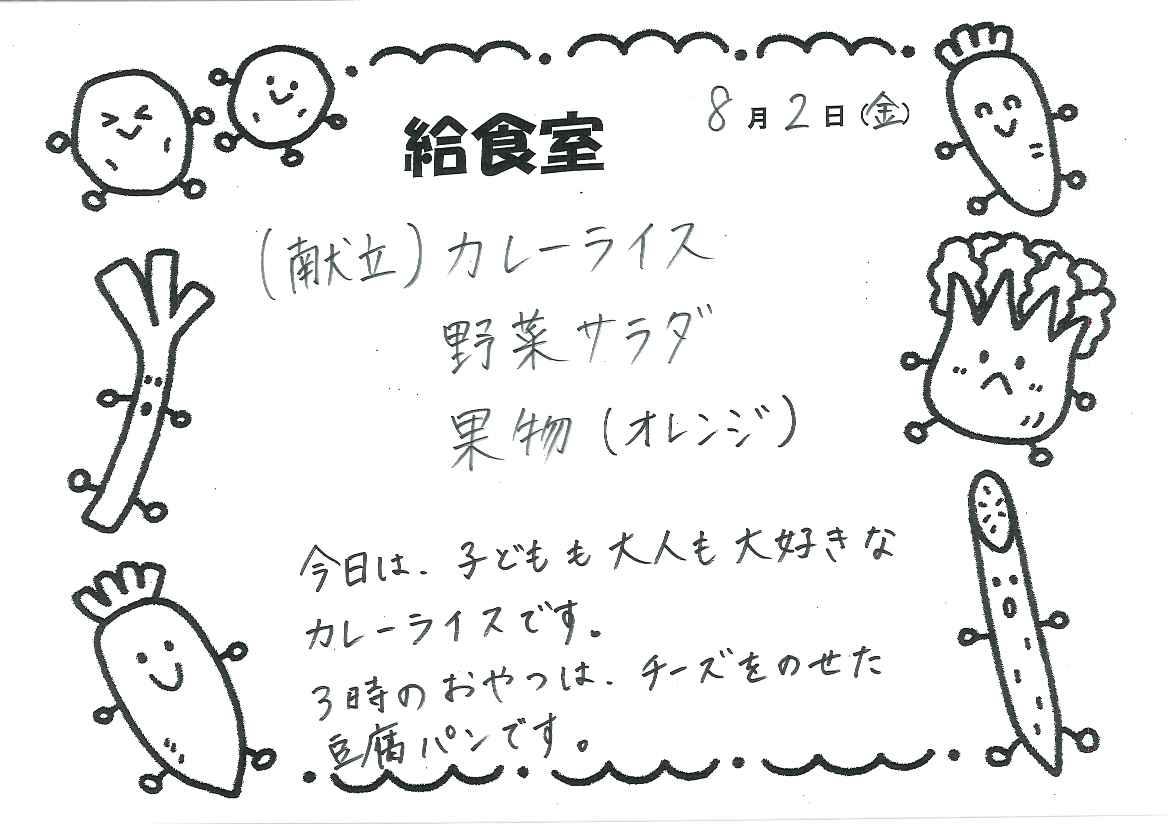 8月2日(金)
給食室
(献立)カレーライス
野菜サラダ
果物(オレンジ)
今日は、子どもも大人も大好きな
カレーライスです。
3時のおやつは、チーズをのせた
豆腐パンです。